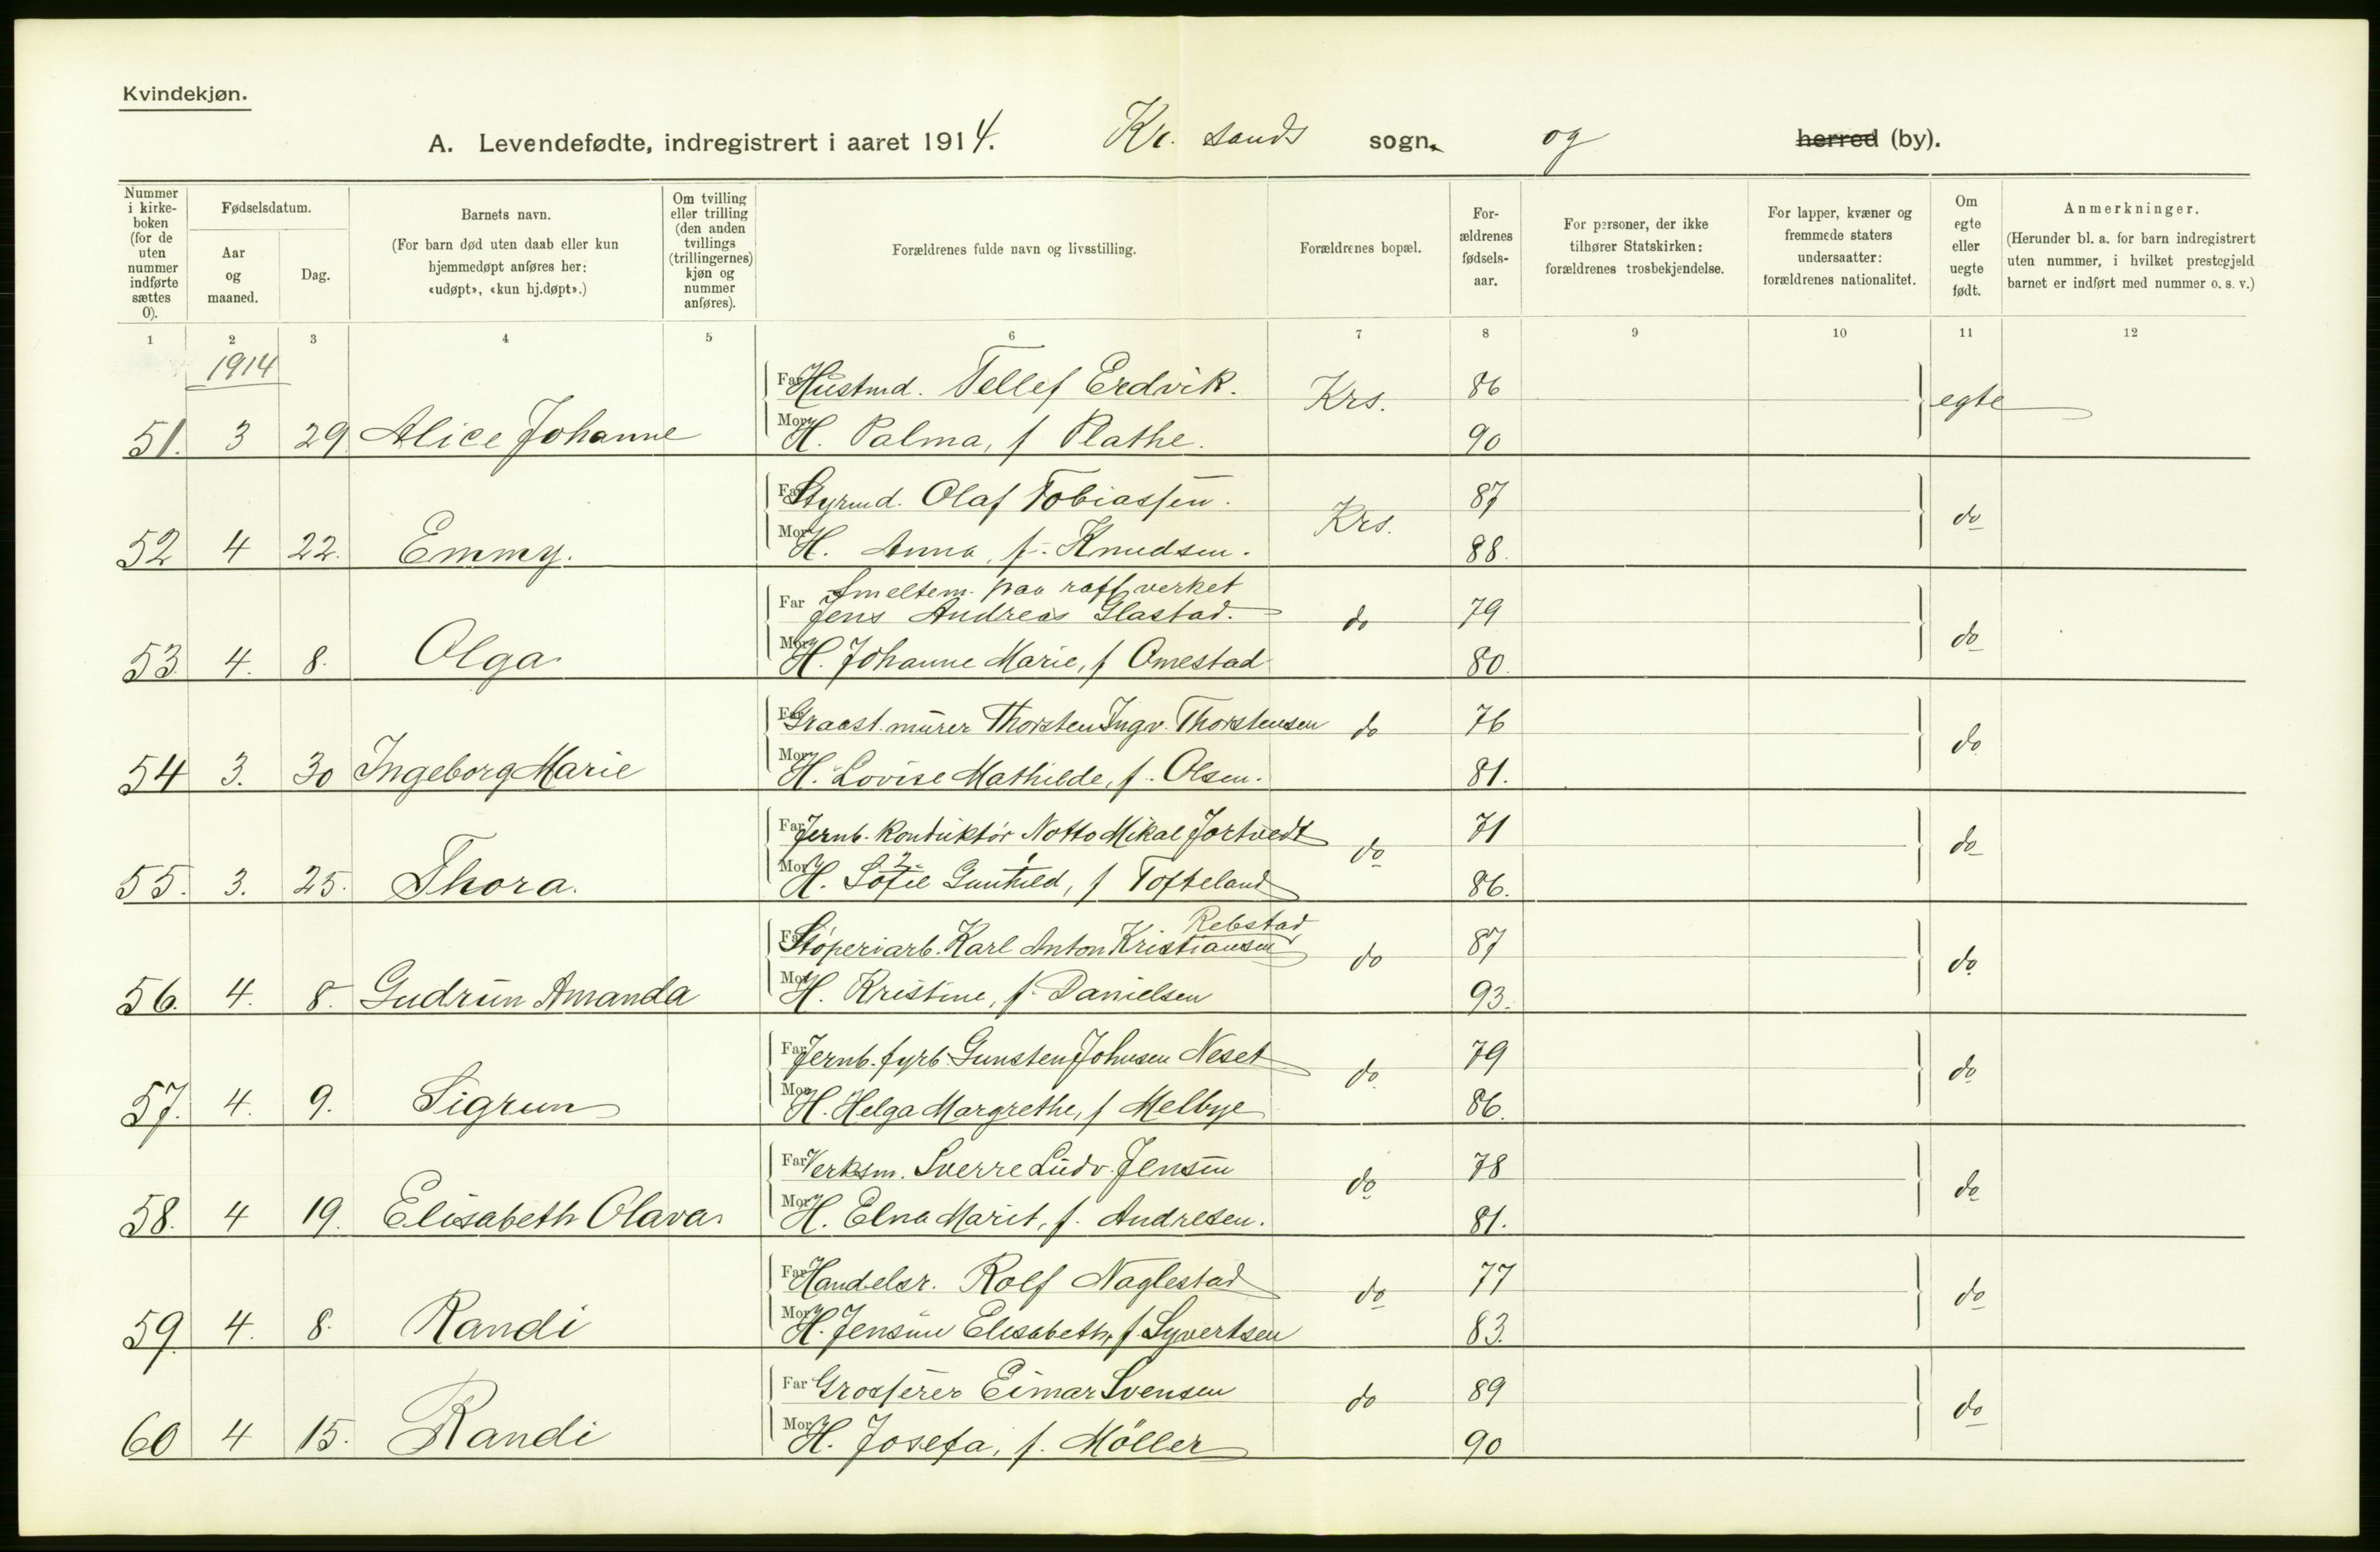 Kvindekjøn.
A. Levendefødte, indregistrert i aaret 1914. Kr. sands sogn. og herred (by).
Nummer i kirke-boken (for de uten nummer indførte sættes 0).
Fødselsdatum.
Aar og maaned.
Dag.
Barnets navn.
(For barn død uten daab eller kun hjemmedøpt anføres her: «udøpt», «kun hj.døpt».)
Om tvilling eller trilling (den anden tvillings (trillingernes) kjøn og nummer anføres).
Forældrenes fulde navn og livsstilling.
Forældrenes bopæl.
For-ældrenes fødsels-aar.
For personer, der ikke tilhører Statskirken: forældrenes trosbekjendelse.
For lapper, kvæner og fremmede staters undersaatter: forældrenes nationalitet.
Om egte eller uegte født.
Anmerkninger.
(Herunder bl. a. for barn indregistrert uten nummer, i hvilket prestegjeld barnet er indført med nummer o. s. v.)
1 2 3 4 5 6 7 8 9 10 11 12
1914
Far Hustmd. Tellef Eedvik. Krs. 86 egte
51. 3 29 Alice Johanne Mor H. Palma, f Plathe. 90
Far Styrmd. Olaf Tobiassen. Krs. 87 do
52 4 22. Emmy. Mor H. Anna, f. Knudsen. 88.
Smeltem. paa raff.verket
Far Jens Andreas Glastad. do 79 do
53 4. 8. Olga Mor H. Johanne Marie, f Omestad 80.
Far Graast. murer Thorsten Ingv. Thorstensen do 76 do
54 3. 30 Ingeborg Marie Mor H. Lovise Mathilde, f. Olsen. 81.
Far Jernb. konduktør Notto Mikal Jortvedt do 71 do
2. 1
55. 3. 25. Thora. Mor H. Sofie Gunhild, f Tofteland 86.
Rebstad
Far Støperiarb. Karl Anton Kristiansen do 87 do
56. 4. 8. Gudrun Amanda Mor H. Kristine, f. Danielsen 93.
Far Jernb. fyrb. Gunsten Johnsen Neset do 79 do
57. 4. 9. Sigrun Mor H. Helga Margrethe, f Melbye 86.
Far Verksm. Sverre Ludv. Jensen do 78 do
58. 4 19. Elisabeth Olava Mor H. Elna Marit, f. Andresen. 81.
Far Handelsr. Rolf Naglestad do 77 do
59. 4. 8. Randi Mor H. Jensine Elisabeth, f. Syvertsen 83.
Far Grosserer Eimar Svensen do 89 do
60 4 15. Randi Mor H. Josefa, f. Möller 90